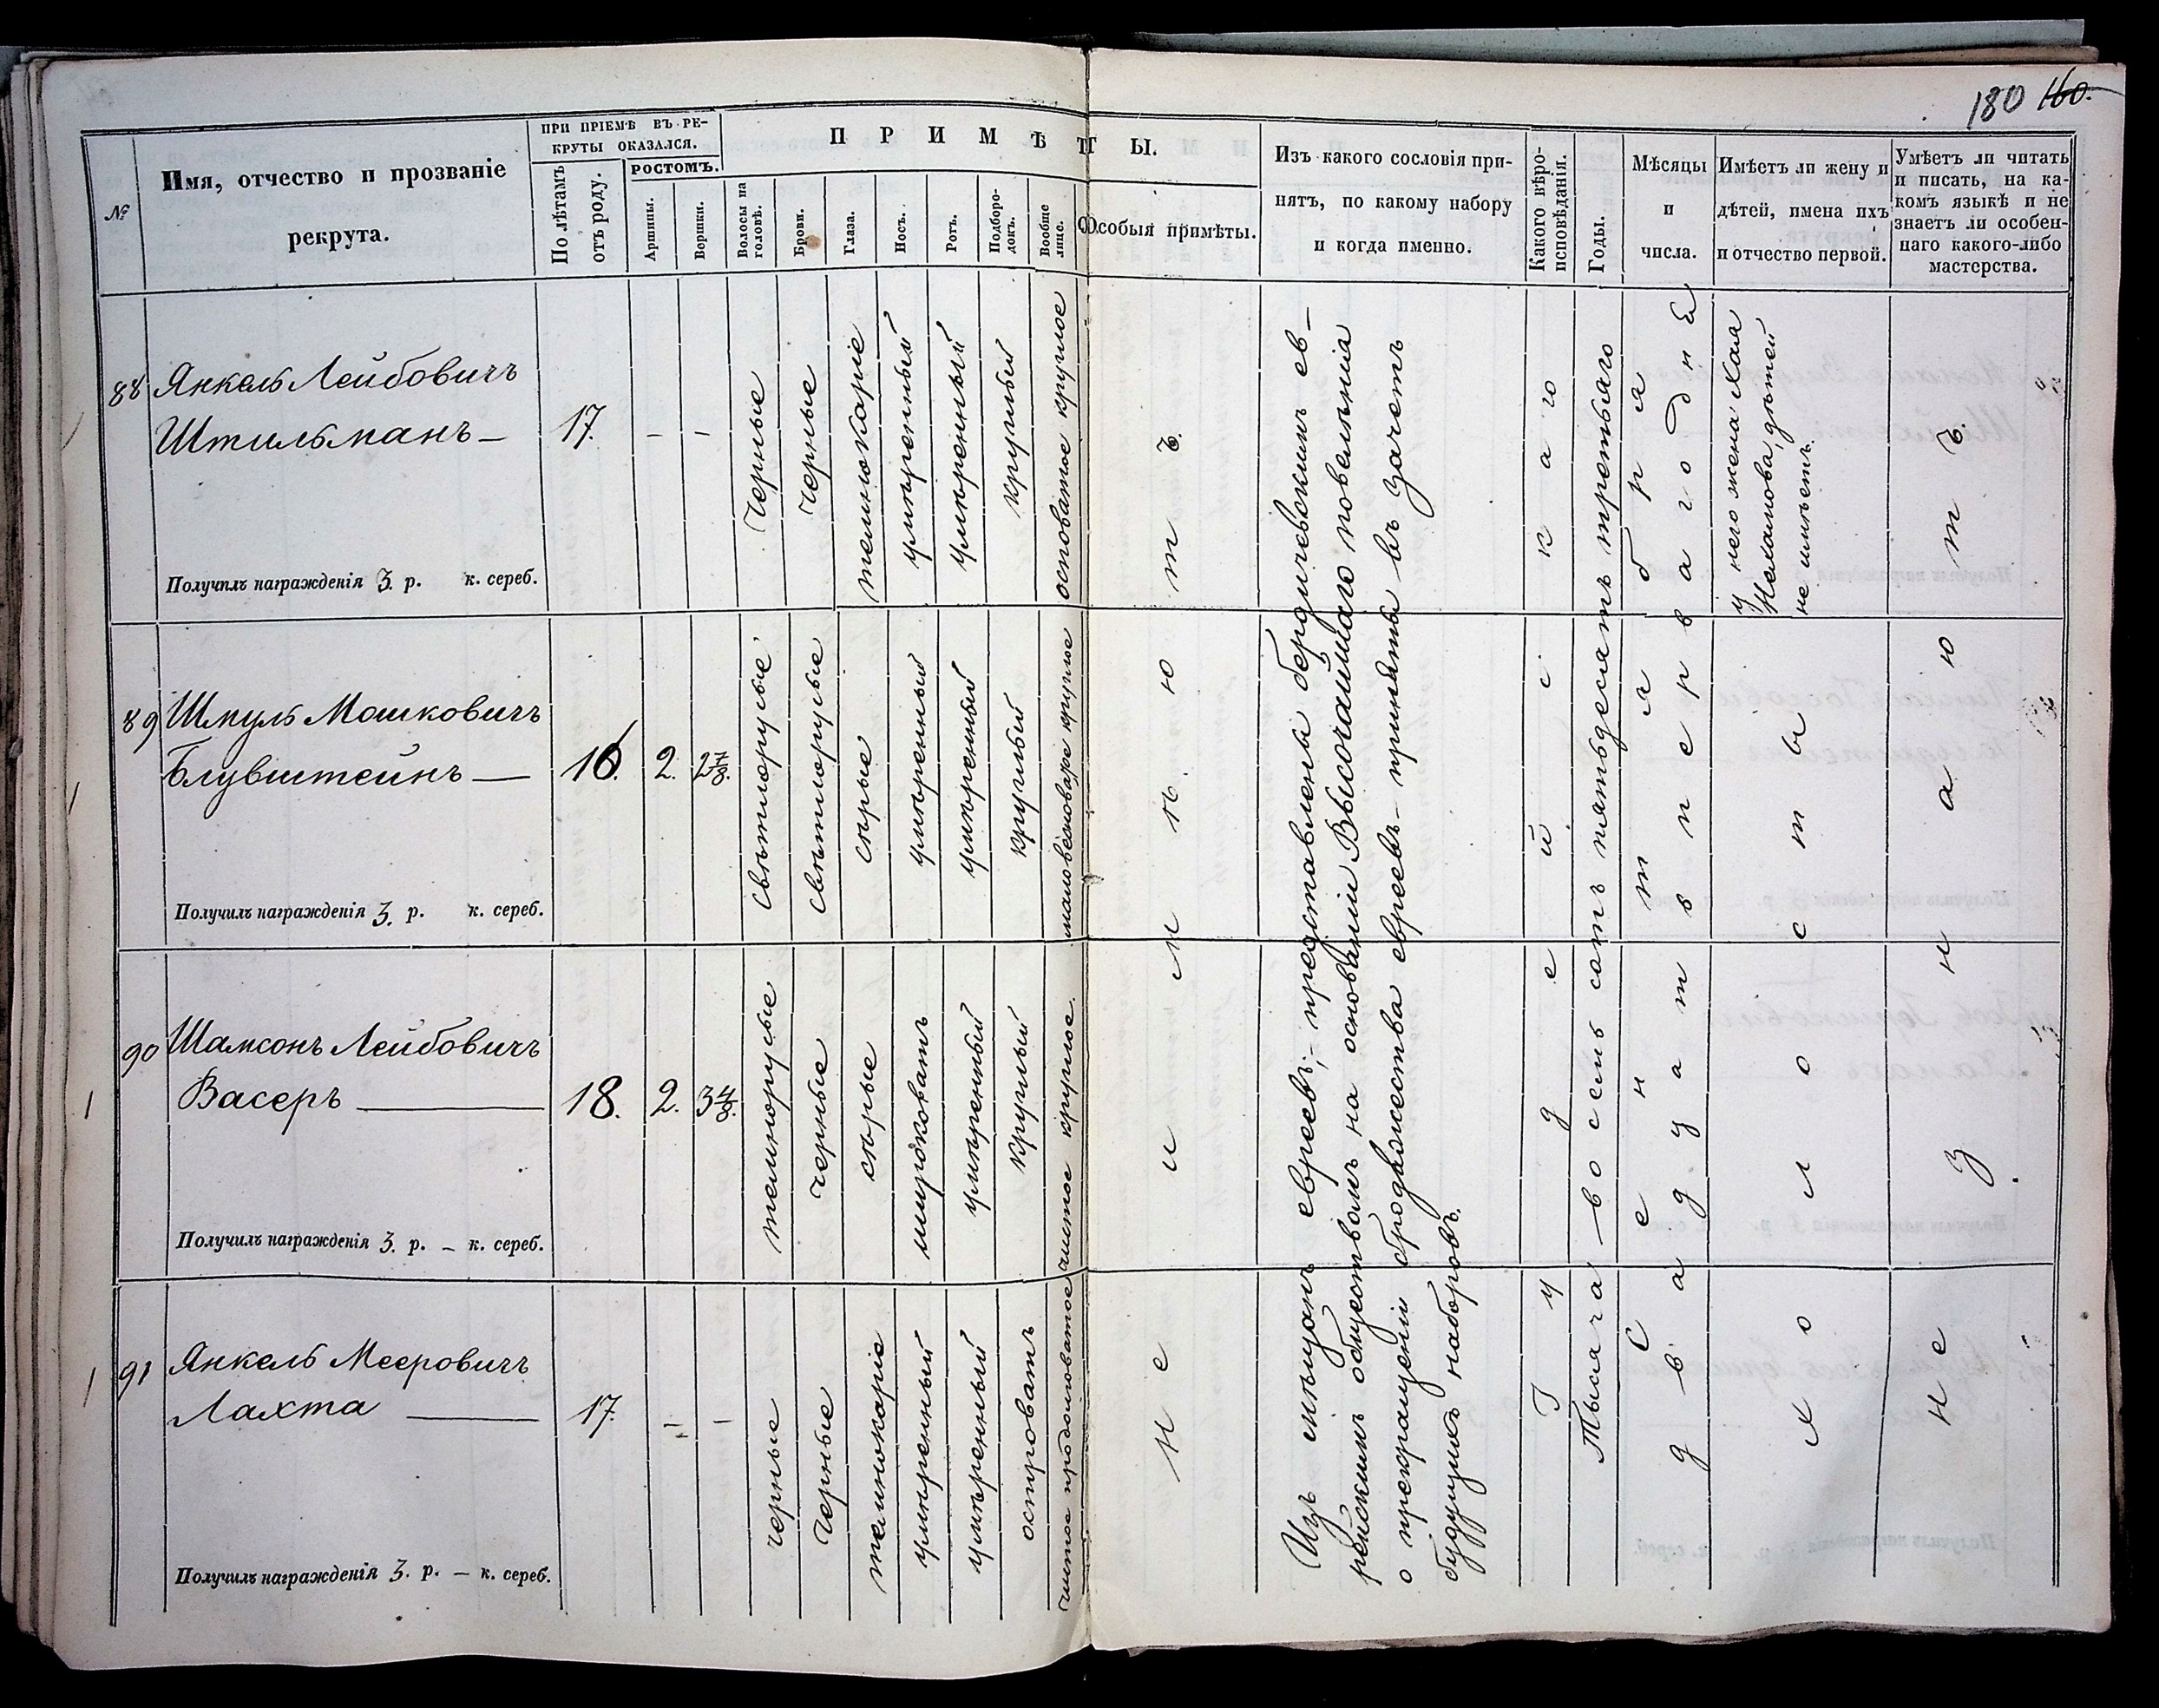 180 160.
№
Имя, отчество и прозваніе
рекрута.
ПРИ ПРІЕМѢ ВЪ РЕ-
КРУТЫ ОКАЗАЛСЯ.
По лѣтамъ
отъ роду.
РОСТОМЪ.
Аршины.
Вершки.
ПРИМѢТЫ.
Волосы на
головѣ.
Брови.
Глаза.
Носъ.
Ротъ.
Подборо-
докъ.
Вообще
лице.
Особыя примѣты.
Изъ какого сословія при-
нятъ, по какому набору
и когда именно.
Какого вѣро-
исповѣданія.
Годы.
Мѣсяцы
и
числа.
Имѣетъ ли жену и
дѣтей, имена ихъ
и отчество первой.
Умѣетъ ли читать
и писать, на ка-
комъ языкѣ и не
знаетъ ли особен-
наго какого-либо
мастерства.
88 Янкель Лейбовичъ
Штильманъ —
17. – –
Черные
черные
темнокаріе
умѣренный
умѣренный
круглый
осповатое круглое
у него жена Хая
Нахманова, дѣтей
не имѣетъ.
Получилъ награжденія 3. р. к. сереб.
89 Шмуль Мошковичъ
Блувштейнъ —
16. 2. 2 7/8.
Свѣтлорусые
Свѣтлорусые
сѣрые
умѣренный
умѣренный
круглый
маловесноватое круглое
Получилъ награжденія 3. р. к. сереб.
90 Шамсонъ Лейбовичъ
Васеръ —
18. 2. 3 4/8.
темнорусые
черные
сѣрые
широковатъ
умѣренный
круглый
чистое круглое.
Получилъ награжденія 3. р. – к. сереб.
91 Янкель Мееровичъ
Лахта —
17. – –
черные
черные
темнокаріе
умѣренный
умѣренный
островатъ
чистое продолговатое
Получилъ награжденія 3. р. – к. сереб.
Не имѣютъ.
Изъ мѣщанъ евреевъ, – представлены бердичевскимъ ев-
рейскимъ обществомъ на основаніи Высочайшаго повелѣнія
о прекращеніи бродяжества евреевъ – приняты въ зачетъ
будущихъ наборовъ.
Іудейскаго
Тысяча восемь сотъ пятьдесятъ третьяго
Сентября
двадцать впервагоднѣ
холосты
Не знаютъ.